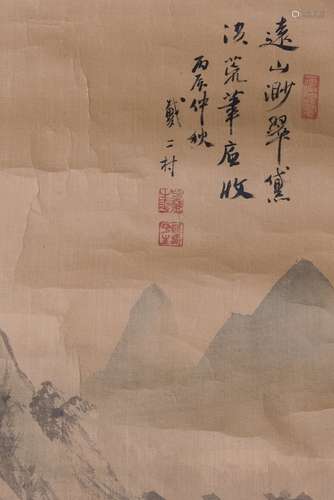 遠山渺翠黛
淡荒筆底收
丙辰仲秋
戴二村